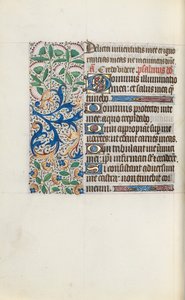 Delicta iuventutis mee et igno
rancias meas ne memineris
Credo videre psalmus
Dominus illuminatio
mea: et salus mea que
timebo
Dominus protector vite
mee: a quo trepidabo
Dum appropiant super me
nocentes: ut edant carnes meas
Qui tribulant me inimici
mei: ipsi infirmati sunt et ceciderunt
Si consistant adversum
me castra: non timebit cor
meum